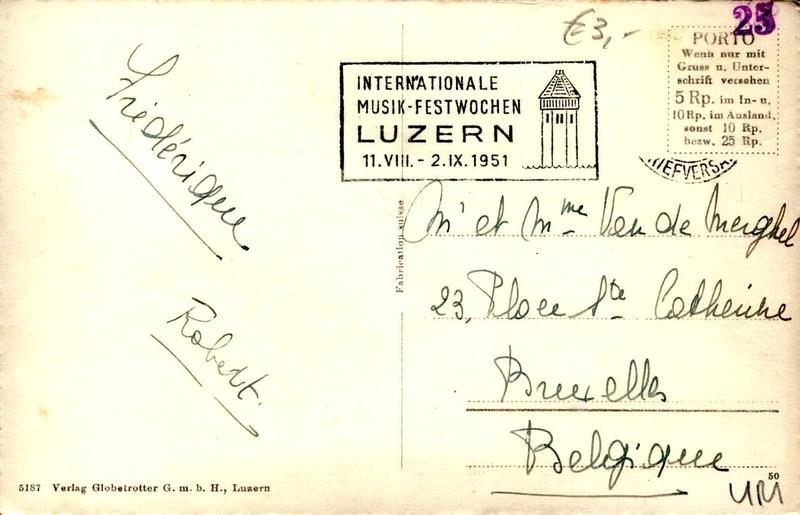 Frédérique
Robert.
5187 Verlag Globetrotter G. m. b. H., Luzern
Fabrication suisse
€3,-
INTERNATIONALE
MUSIK-FESTWOCHEN
LUZERN
11.VIII. - 2.IX.1951
25
PORTO
Wenn nur mit
Gruss u. Unter-
schrift versehen
5 Rp. im In- u.
10 Rp. im Ausland,
sonst 10 Rp.
bezw. 25 Rp.
Mr et Mme Van de
23, Place Ste Catherine
Bruxelles
Belgique
50